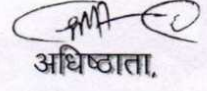 अधिष्ठाता,